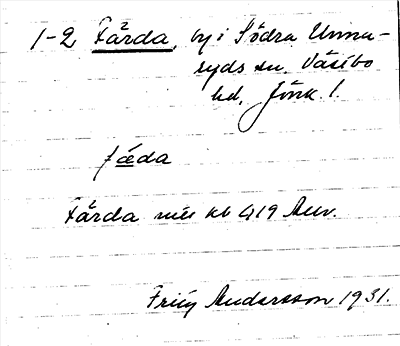 1-2 Fårda, by i Södra Unna-
ryds sn. Västbo
hd. Jönk. l.
fɷda
Fårda mtl kb 419 Auv.
Frity Andersson 1931.